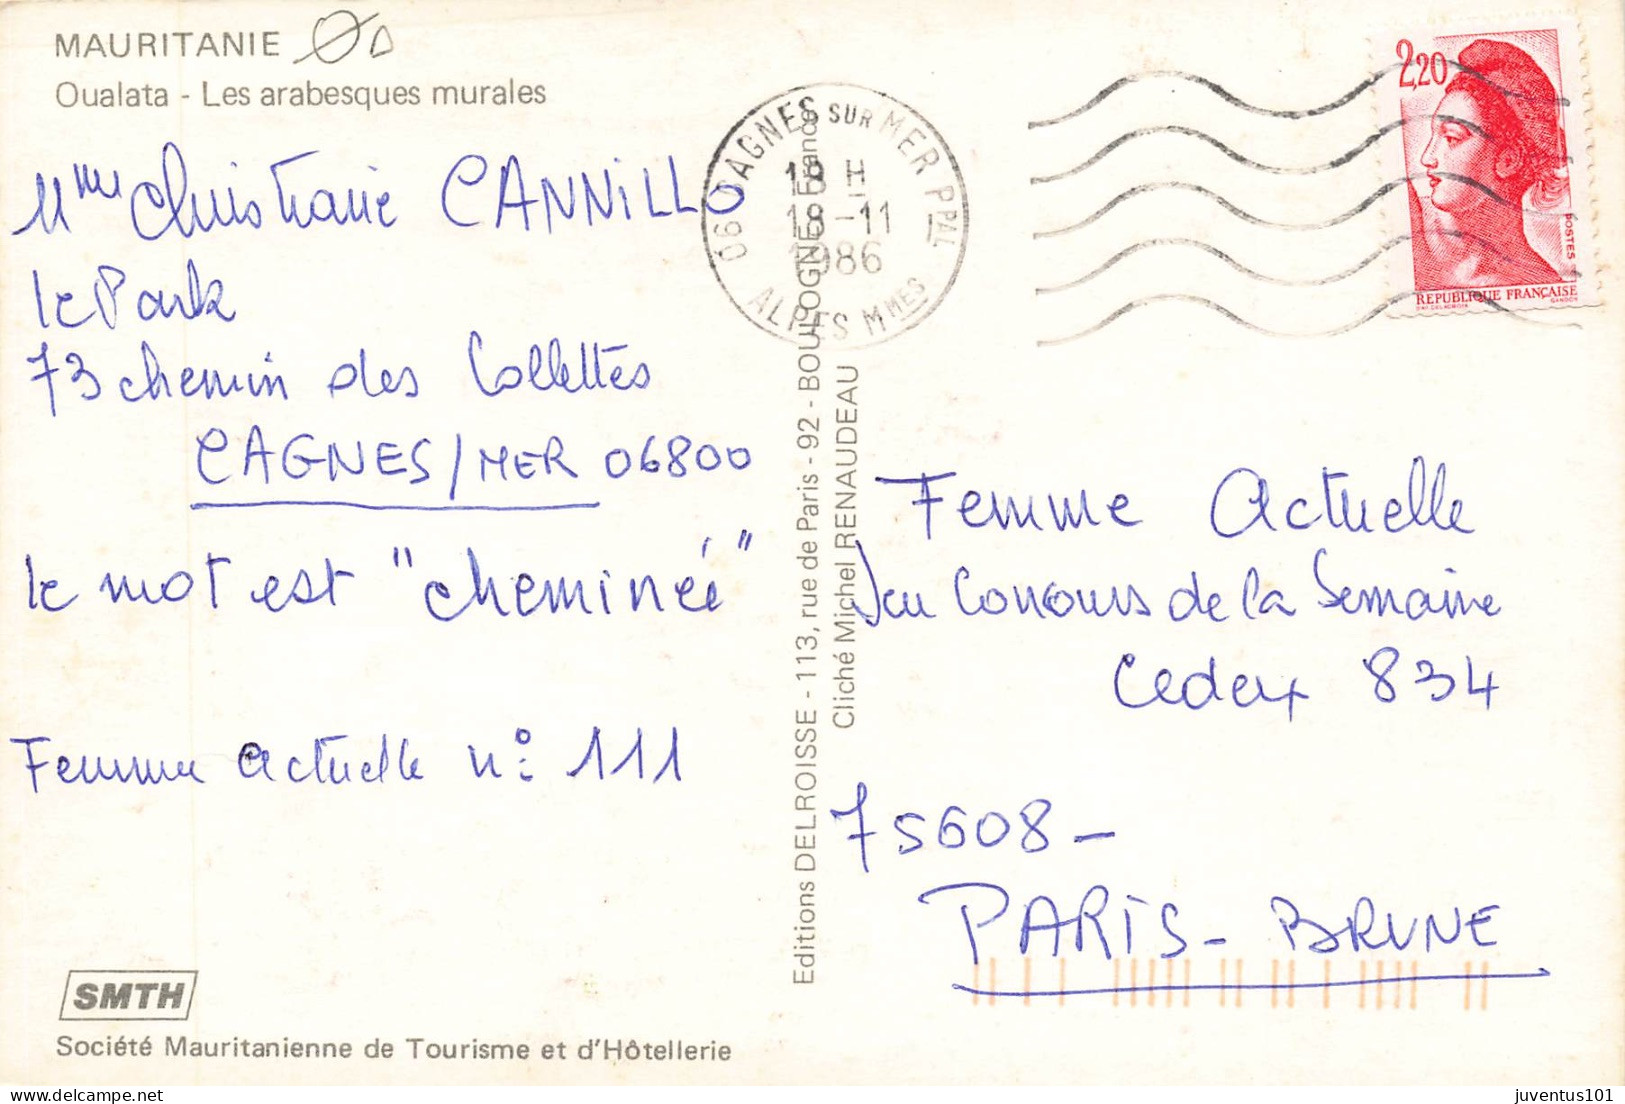 MAURITANIE
Oualata - Les arabesques murales
Mme Christiane CANNILLO
le Park
73 chemin des Collettes
CAGNES/MER 06800
le mot est "cheminée"
Femme actuelle n° 111
SMTH
Société Mauritanienne de Tourisme et d'Hôtellerie
Editions DELROISSE - 113, rue de Paris - 92 - BOULOGNE - France
Cliché Michel RENAUDEAU
06 CAGNES SUR MER PPAL
18 H
18-11
1986
ALPES MMES
2,20
POSTES
REPUBLIQUE FRANÇAISE
Femme Actuelle
Jeu Concours de la Semaine
Cedex 834
75608 -
PARIS - BRUNE
juventus101